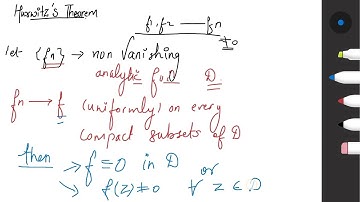 Hurwitz's Theorem
f1, f2 —— fn
≠0
let {fn} → non Vanishing
analytic D.
fn → f (uniformly) on every
compact subsets of D
then → f ≡ 0 in D
or
→ f(z) ≠ 0 ∀ z ∈ D